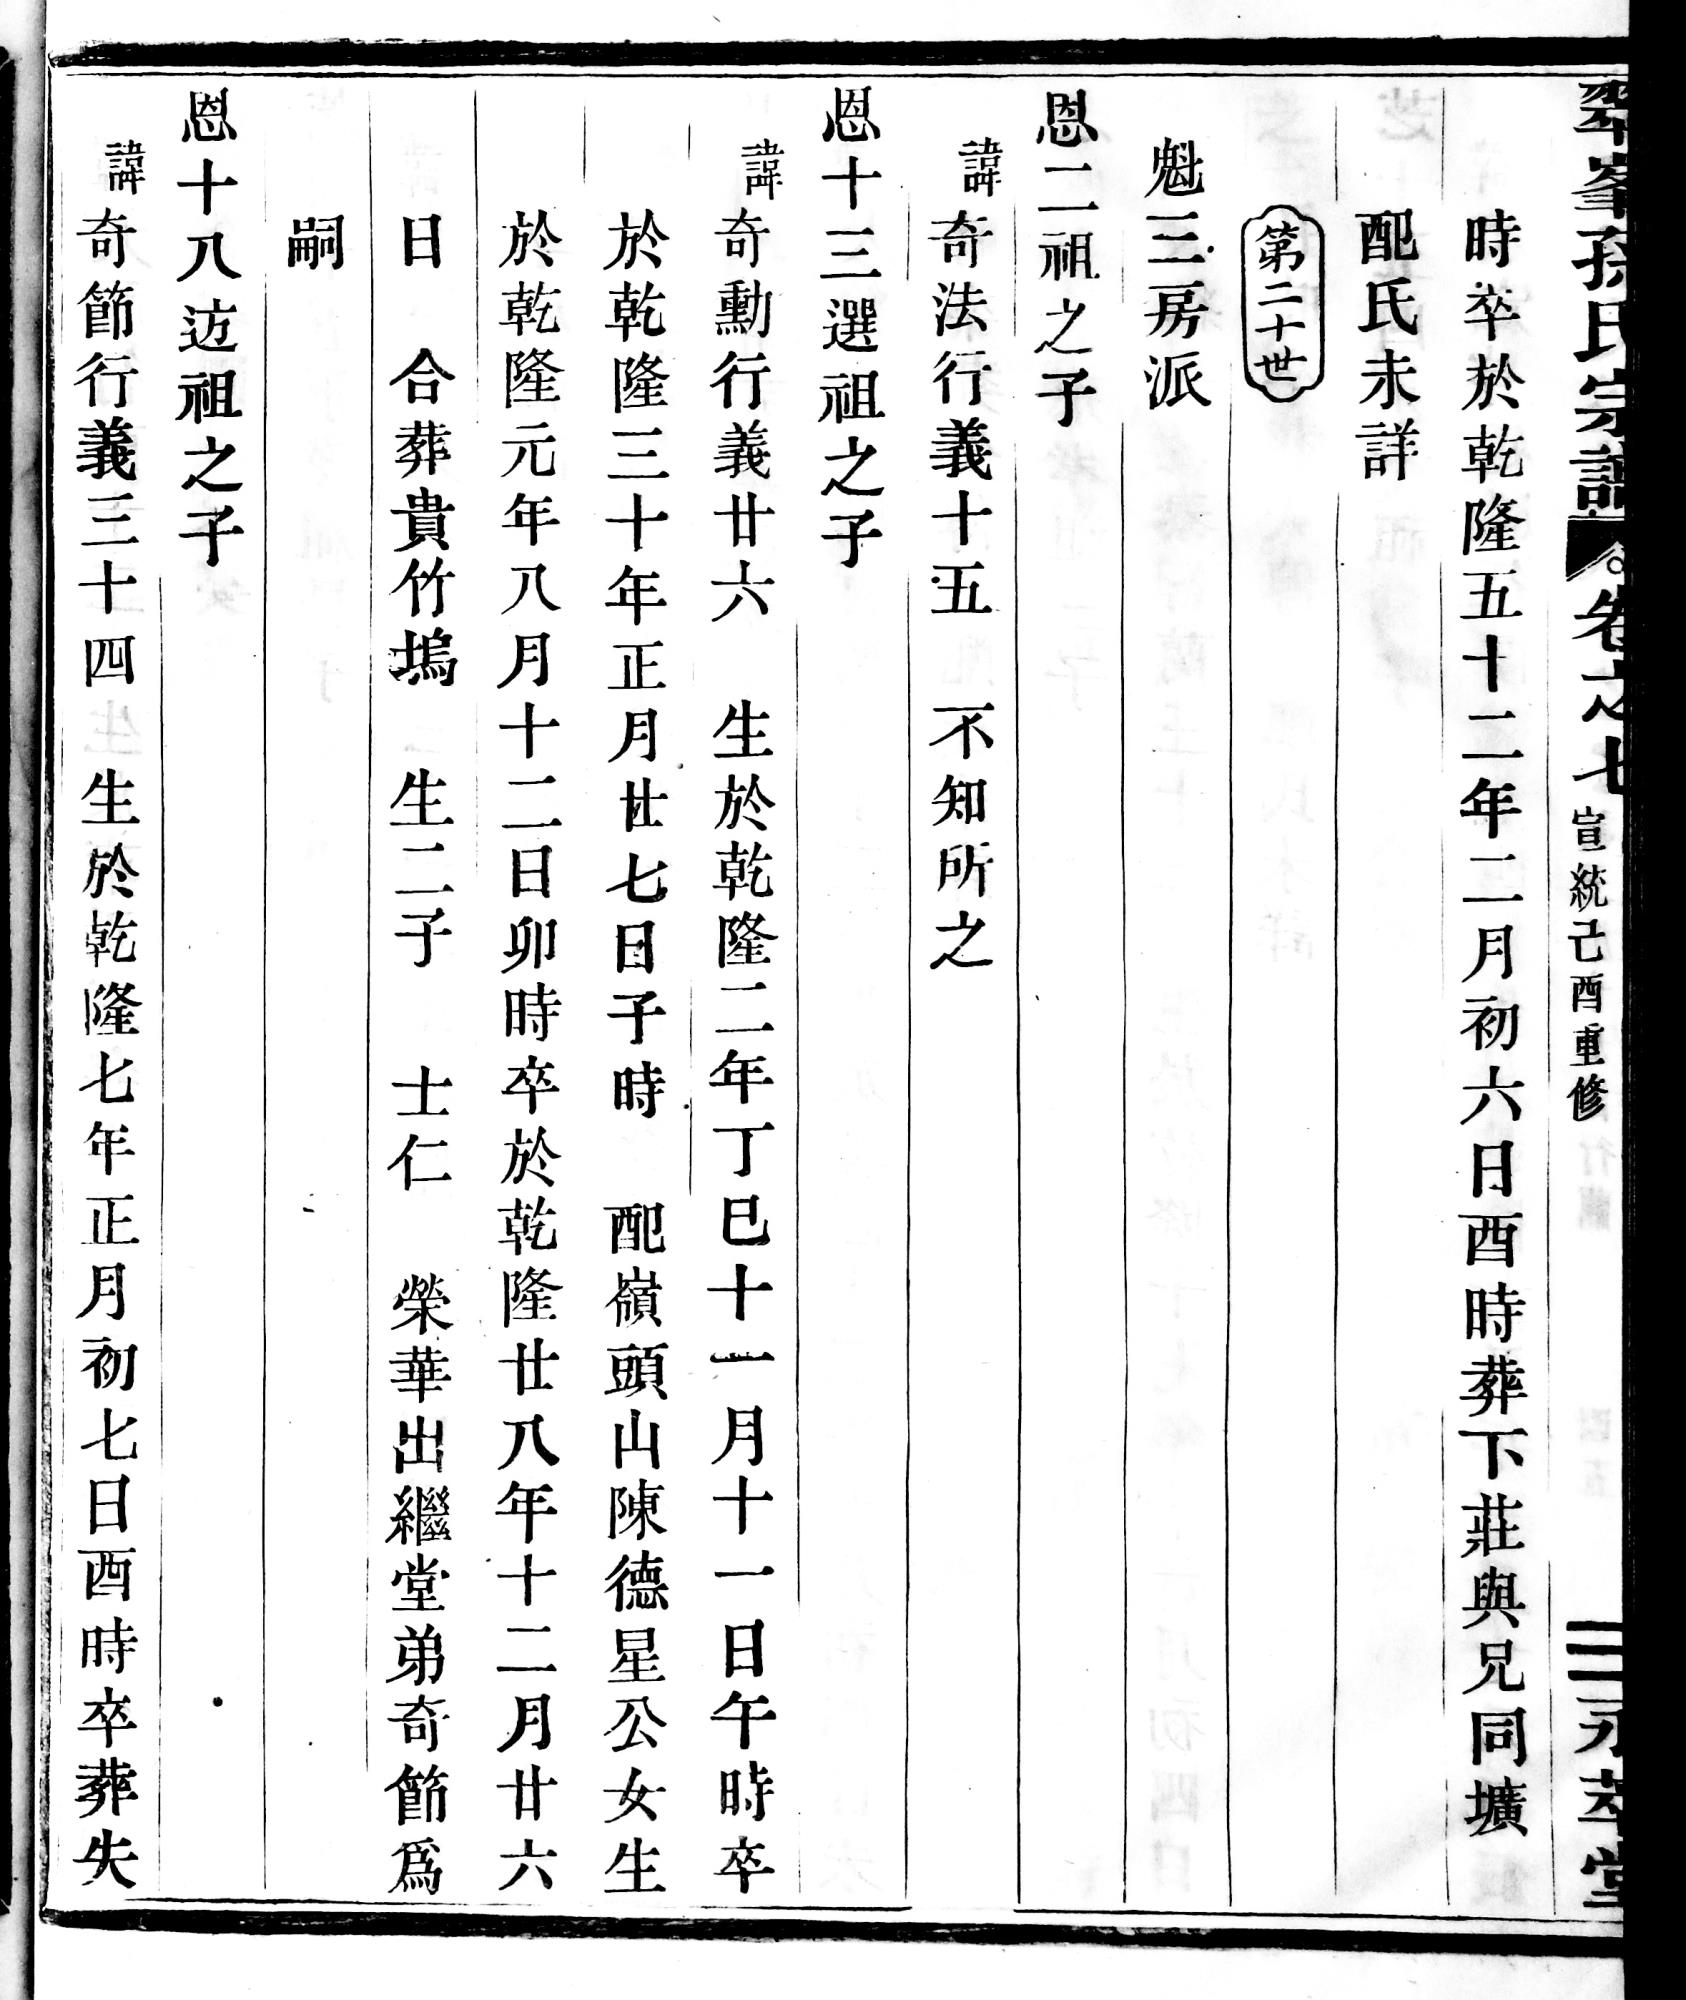 翠峯孫氏宗譜 卷之七 宣統己酉重修 二 永萃堂
時卒於乾隆五十二年二月初六日酉時葬下莊與兄同壙
配氏未詳
第二十世
魁三房派
恩二祖之子
諱奇法行義十五 不知所之
恩十三選祖之子
諱奇勳行義廿六 生於乾隆二年丁巳十一月十一日午時卒
於乾隆三十年正月廿七日子時 配嶺頭山陳德星公女生
於乾隆元年八月十二日卯時卒於乾隆廿八年十二月廿六
日 合葬貴竹塢 生二子 士仁 榮華出繼堂弟奇節爲
嗣
恩十八迈祖之子
諱奇節行義三十四 生於乾隆七年正月初七日酉時卒葬失